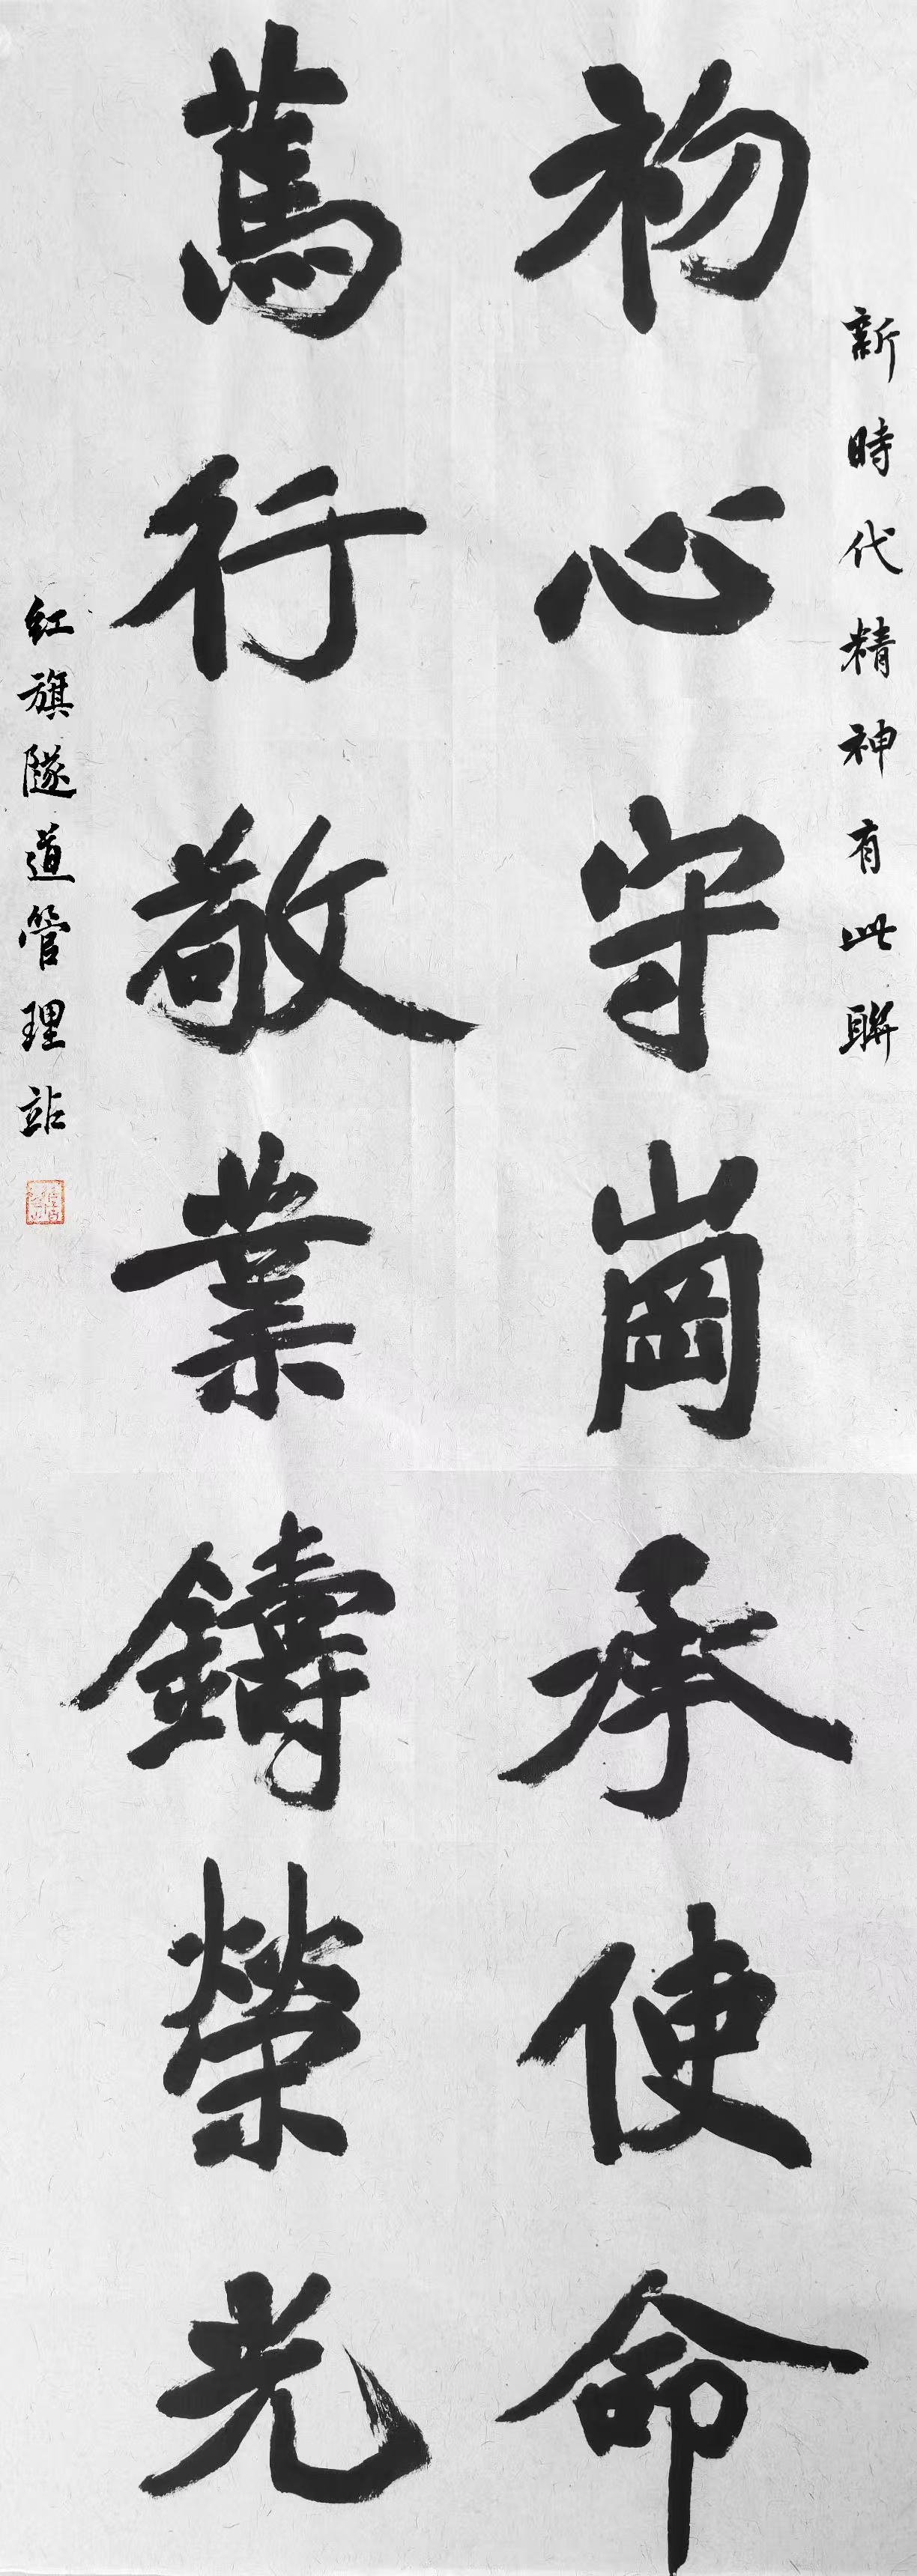 新時代精神有此聯
初心守崗承使命
篤行敬業鑄榮光
红旗隧道管理站